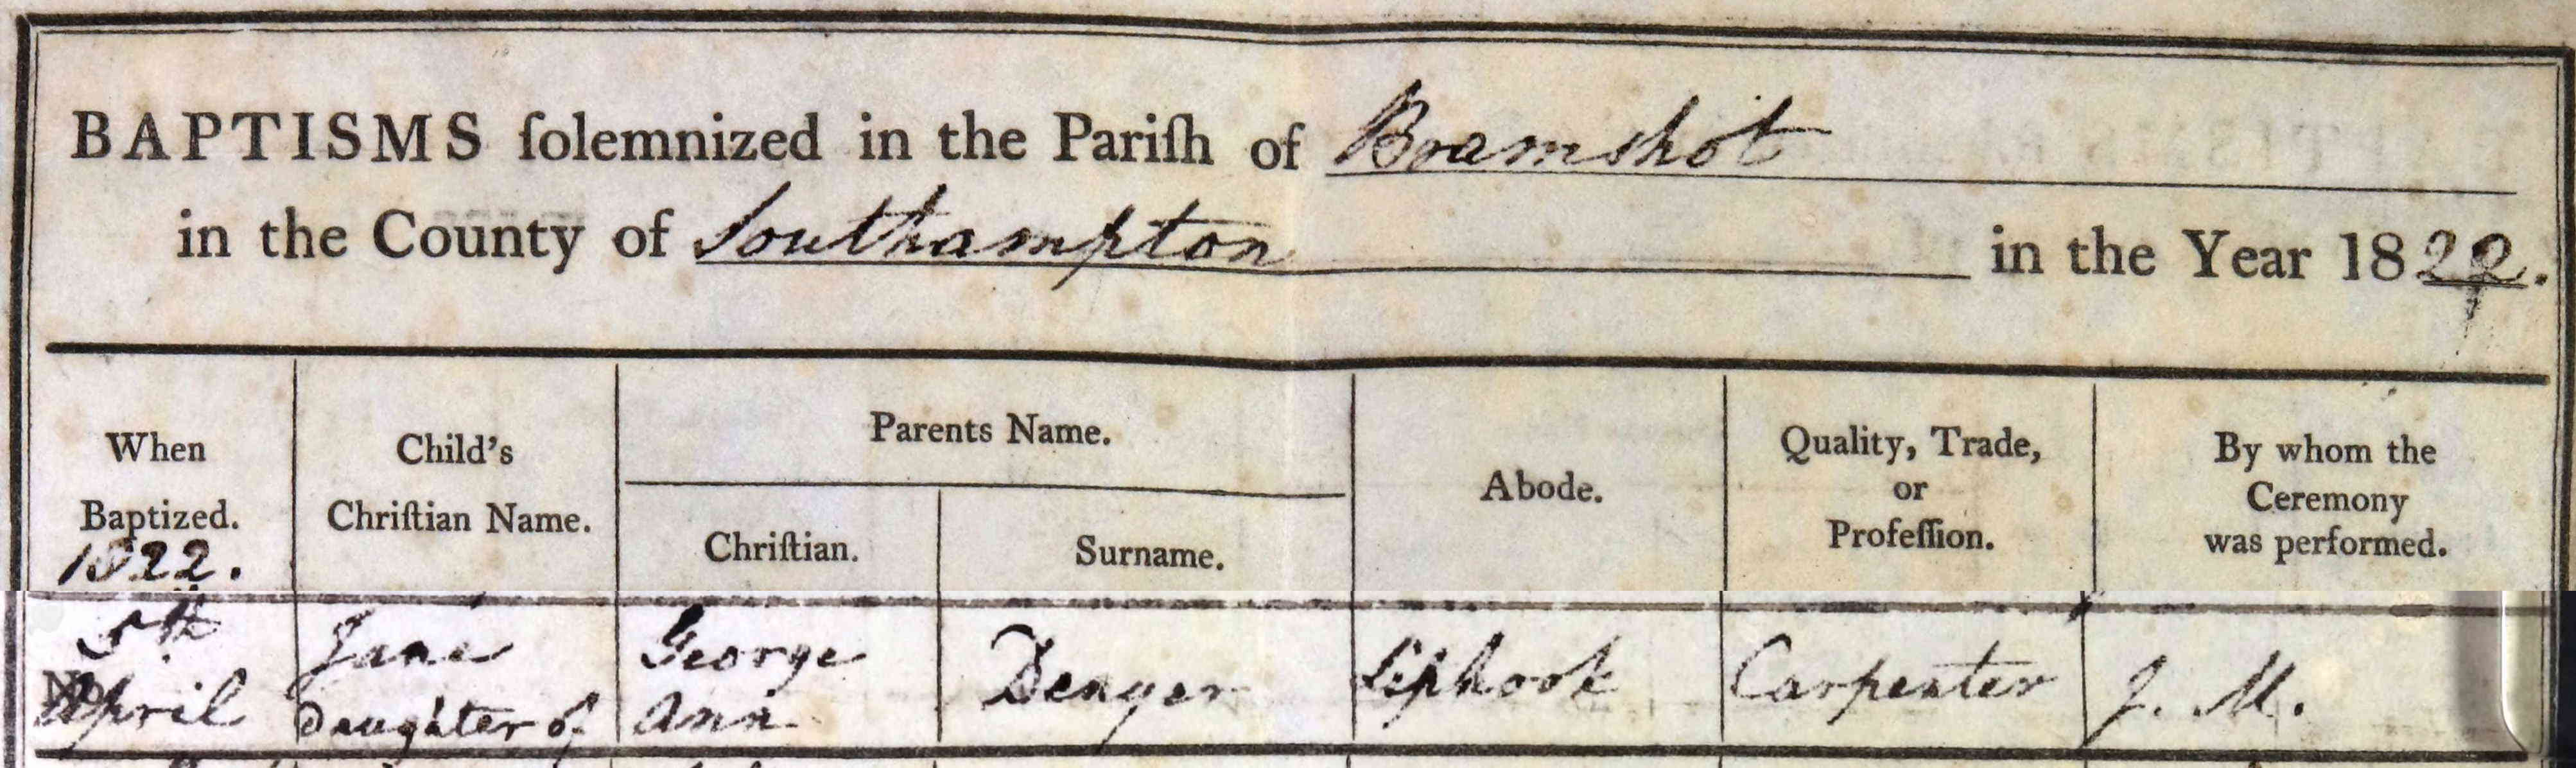 BAPTISMS ſolemnized in the Pariſh of Bramshot
in the County of Southampton in the Year 1822.
When
Baptized.
1822.
Child's
Chriſtian Name.
Parents Name.
Chriſtian.
Surname.
Abode.
Quality, Trade,
or
Profeſſion.
By whom the
Ceremony
was performed.
5th
April
No
Jane
Daughter of
George
Ann
Denyer
Liphook
Carpenter
J. M.